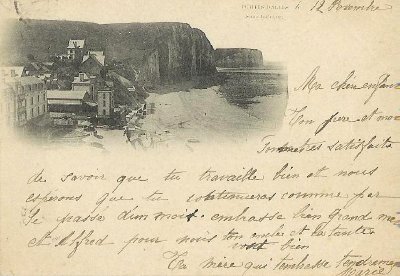 PETITES DALLES
12 Novembre
Ma chère enfant
Ton père et moi
sommes très satisfaits
de savoir que tu travaille bien et nous
espérons que tu continueras comme par
le passe d'un mois. embrasse bien grand mère
et Alfred pour nous ton oncle et ta tante
vont bien
Ta mère qui t'embrasse tendrement
Marie